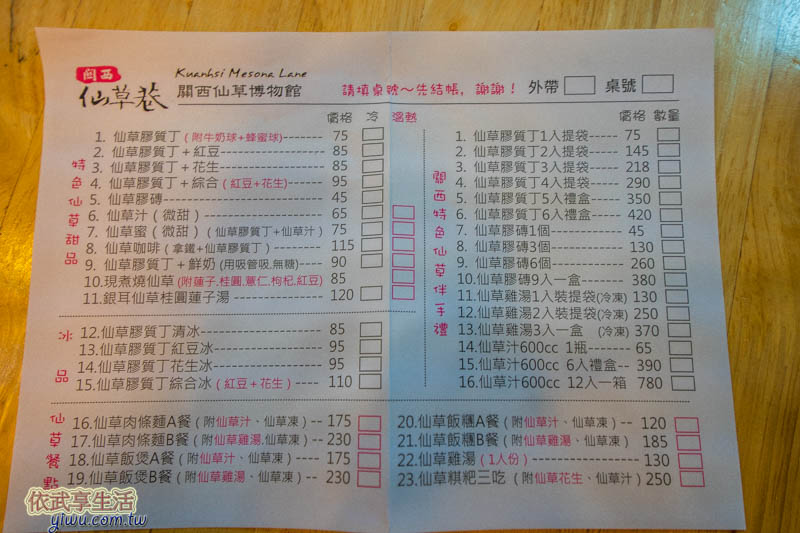 關西 Kuanhsi Mesona Lane
仙草巷 關西仙草博物館 請填桌號～先結帳，謝謝！ 外帶 桌號
價格 冷 溫熱
特色仙草甜品
1. 仙草膠質丁 (附牛奶球+蜂蜜球)------- 75
2. 仙草膠質丁＋紅豆------- 85
3. 仙草膠質丁＋花生------- 85
4. 仙草膠質丁＋綜合 (紅豆+花生)------ 95
5. 仙草膠磚------- 45
6. 仙草汁 ( 微甜 ) ------- 65
7. 仙草蜜 ( 微甜 ) (仙草膠質丁+仙草汁) 75
8. 仙草咖啡 ( 拿鐵+仙草膠質丁 ) ------- 115
9. 仙草膠質丁＋鮮奶 (用吸管吸,無糖)---- 90
10.現煮燒仙草 (附蓮子,桂圓,薏仁,枸杞,紅豆) 85
11.銀耳仙草桂圓蓮子湯 ------- 120
冰品
12.仙草膠質丁清冰------- 85
13.仙草膠質丁紅豆冰------- 95
14.仙草膠質丁花生冰------- 95
15.仙草膠質丁綜合冰 ( 紅豆＋花生 ) ---- 110
價格 數量
關西特色仙草伴手禮
1. 仙草膠質丁1入提袋----- 75
2. 仙草膠質丁2入提袋----- 145
3. 仙草膠質丁3入提袋----- 218
4. 仙草膠質丁4入提袋----- 290
5. 仙草膠質丁5入禮盒----- 350
6. 仙草膠質丁6入禮盒----- 420
7. 仙草膠磚1個------- 45
8. 仙草膠磚3個------- 130
9. 仙草膠磚6個------- 260
10.仙草膠磚9入一盒------- 380
11.仙草雞湯1入裝提袋(冷凍) 130
12.仙草雞湯2入裝提袋(冷凍) 250
13.仙草雞湯3入一盒 (冷凍) 370
14.仙草汁600cc 1瓶------- 65
15.仙草汁600cc 6入禮盒--- 390
16.仙草汁600cc 12入一箱 780
仙草餐點
16.仙草肉條麵A餐 ( 附仙草汁、仙草凍 ) -- 175
17.仙草肉條麵B餐 ( 附仙草雞湯,仙草凍 ) -- 230
18.仙草飯煲A餐 ( 附仙草汁、仙草凍 ) ---- 175
19.仙草飯煲B餐 ( 附仙草雞湯、仙草凍 ) -- 230
20.仙草飯糰A餐 ( 附仙草汁、仙草凍 ) -- 120
21.仙草飯糰B餐 ( 附仙草雞湯、仙草凍 ) 185
22.仙草雞湯 ( 1人份 ) ------- 130
23.仙草粿粑三吃 ( 附仙草花生、仙草汁 ) 250
依武享生活
yiwu.com.tw